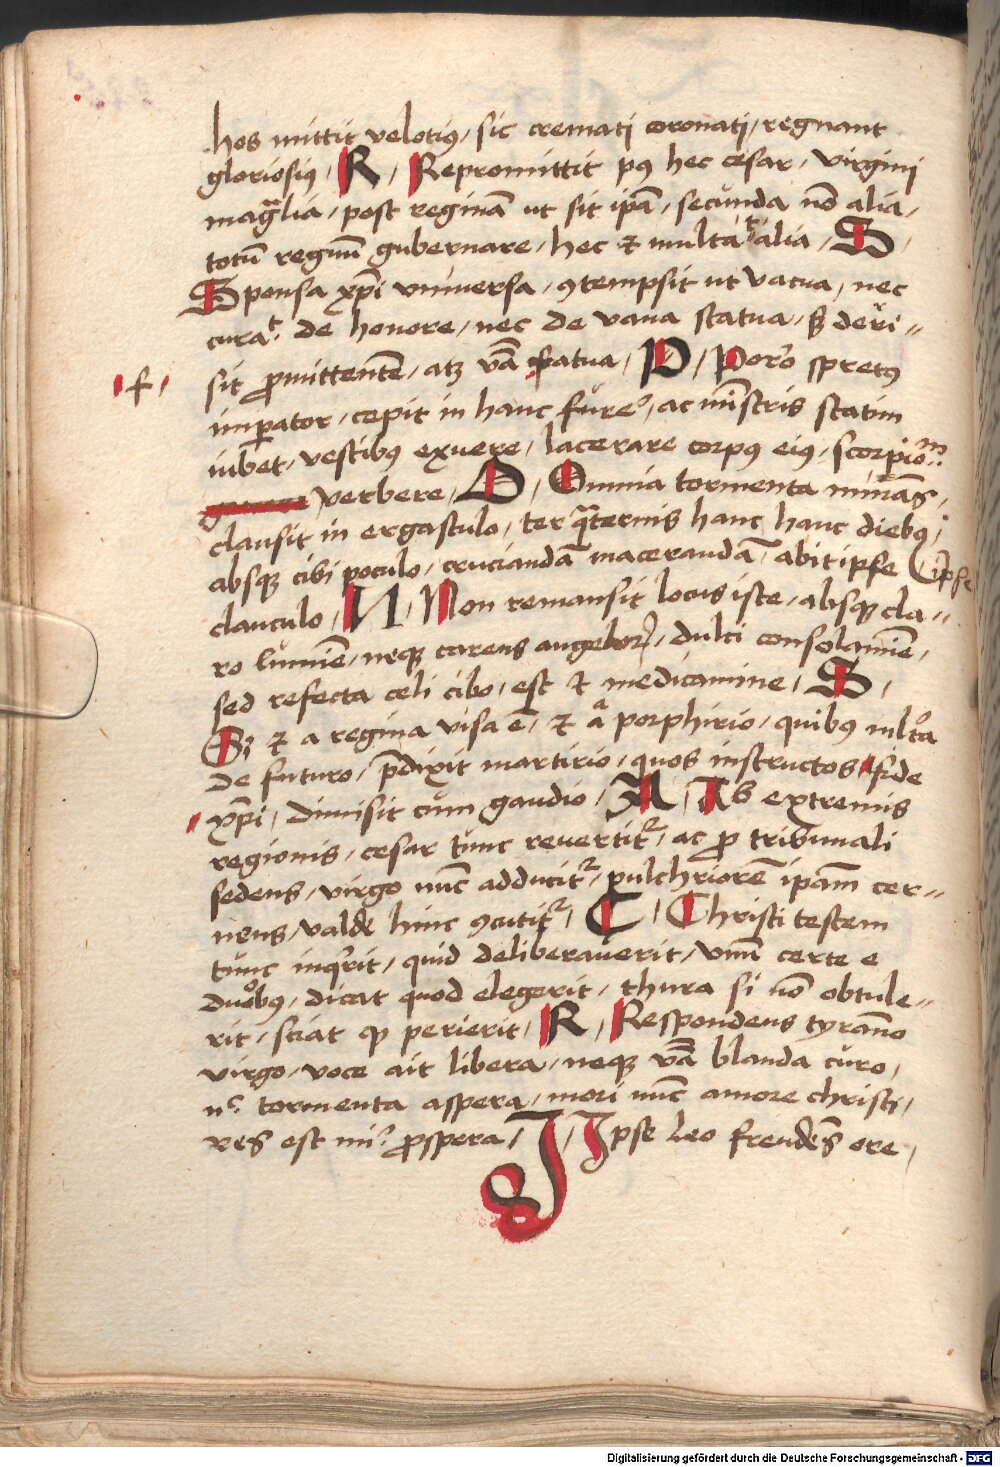 hos mittit velotiꝰ / sic cremati coronati / regnant
gloriosiꝰ / R / Repromittit pꝰ hec cesar / virgini
magᷓlia / post reginā ut sit ip̄a / secunda nō alia /
totū regnū gubernare / hec ⁊ multa t alia / S /
Sponsa xp̄i vniuersa / ꝯtempsit ut vacua / nec
curat᷒ de honore / nec de vana statua / ß deri-
/ f / sit ꝓmittentē / atꝫ vā fatua / P / Porro spretꝰ
imꝑator / cepit in hanc fureͬ / ac mīstris statim
iubet / vestibꝰ exuere / lacerare corpꝰ eiꝰ / scorpioᷠ
verbere / O / Omnia tormenta minās /
clausit in ergastulo / ter qᷓternis hanc hanc diebꝰ /
absqꝫ cibi poculo / cruciandā macerandā / abit ipse ipse
clanculo / N / Non remansit locus iste / absqꝫ cla-
ro lumīe / neqꝫ carens angeloꝝ / dulci consolamīe /
sed refecta celi cibo / est ⁊ medicamine / S /
Si ⁊ a regina visa ē / ⁊ a porphirio / quibꝰ mltͦa
de futuro / p̄dixit martirio / quos instructos / fide
xp̄i / dimisit cum gaudio / A / Ab extremis
regionis / cesar tunc reuertit᷑ / ac ꝓ tribunali
sedens / virgo nūc adducit᷑ / pulchriorē ipam̄ cer-
nens / valde hinc ꝯcutit᷑ / C / Christi testem
tunc inqͥrit / quid deliberauerit / vnū certe e
duobꝰ / dicat quod elegerit / thura si nō obtule-
rit / sciat ꝙ perierit / R / Respondens tyrāno
virgo / voce ait libera / neqꝫ vā blanda curo /
nᶜ tormenta aspera / mori nūc amore christi /
res est miͨ ꝓspera / I / Ipse leo frendēs ore /